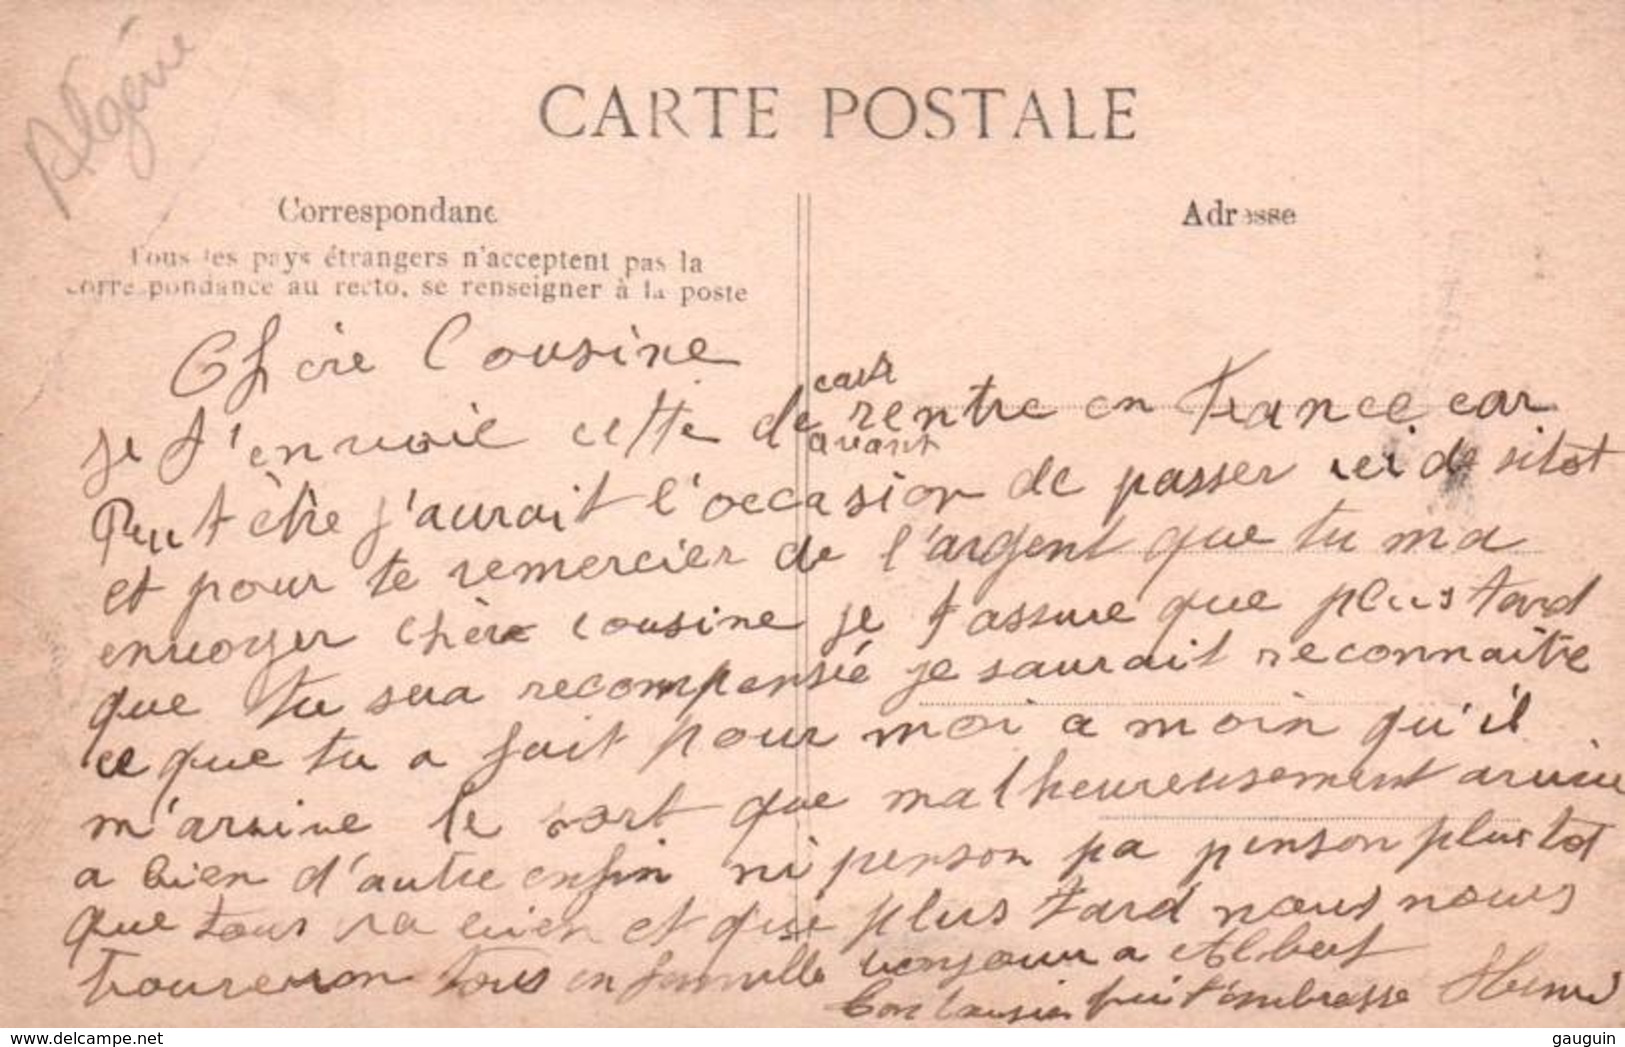 Algérie
CARTE POSTALE
Correspondanc
Tous les pays étrangers n'acceptent pas la
correspondance au recto, se renseigner à la poste
Adresse
Chère Cousine
car
je t'envoie cette de rentre en France car
avant
Peut être j'aurait l'occasion de passer ici de sitot
et pour te remercier de l'argent que tu ma
envoyer chère cousine je t'assure que plus tard
que tu sera recompensé je saurait reconnaitre
ce que tu a fait pour moi a moin qu'il
m'arrive le sort que malheureusement arrive
a bien d'autre enfin ni penson pa penson plus tot
que tous va bien et que plus tard nous nous
trouveron tous en famille bonjour a Albert
Ton cousin qui t'embrasse Henri
delcampe.net
gauguin